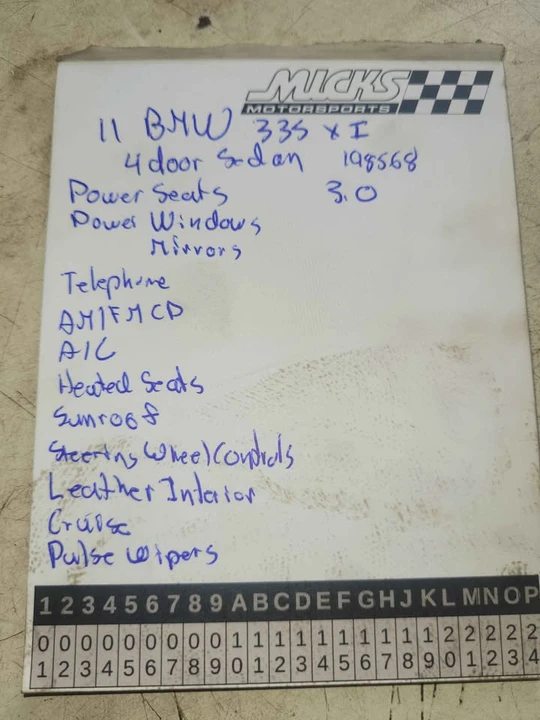 MICKS
MOTORSPORTS
11 BMW 335 x I
4 door Sedan 198568
Power Seats 3.0
Power Windows
Mirrors
Telephone
AM/FM CD
A/C
Heated Seats
Sunroof
Steering Wheel Controls
Leather Interior
Cruise
Pulse Wipers
1 2 3 4 5 6 7 8 9 A B C D E F G H J K L M N O P
0 0 0 0 0 0 0 0 0 1 1 1 1 1 1 1 1 1 1 2 2 2 2 2
1 2 3 4 5 6 7 8 9 0 1 2 3 4 5 6 7 8 9 0 1 2 3 4